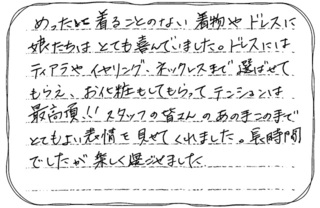 めったに着ることのない着物やドレスに
娘たちはとても喜んでいました。ドレスには
ティアラやイヤリング、ネックレスまで選ばせて
もらえ、お化粧もしてもらってテンションは
最高頂!!スタッフの皆さんのあのまこのまで
とてもよい表情を見せてくれました。長時間
でしたが楽しく過ごせました